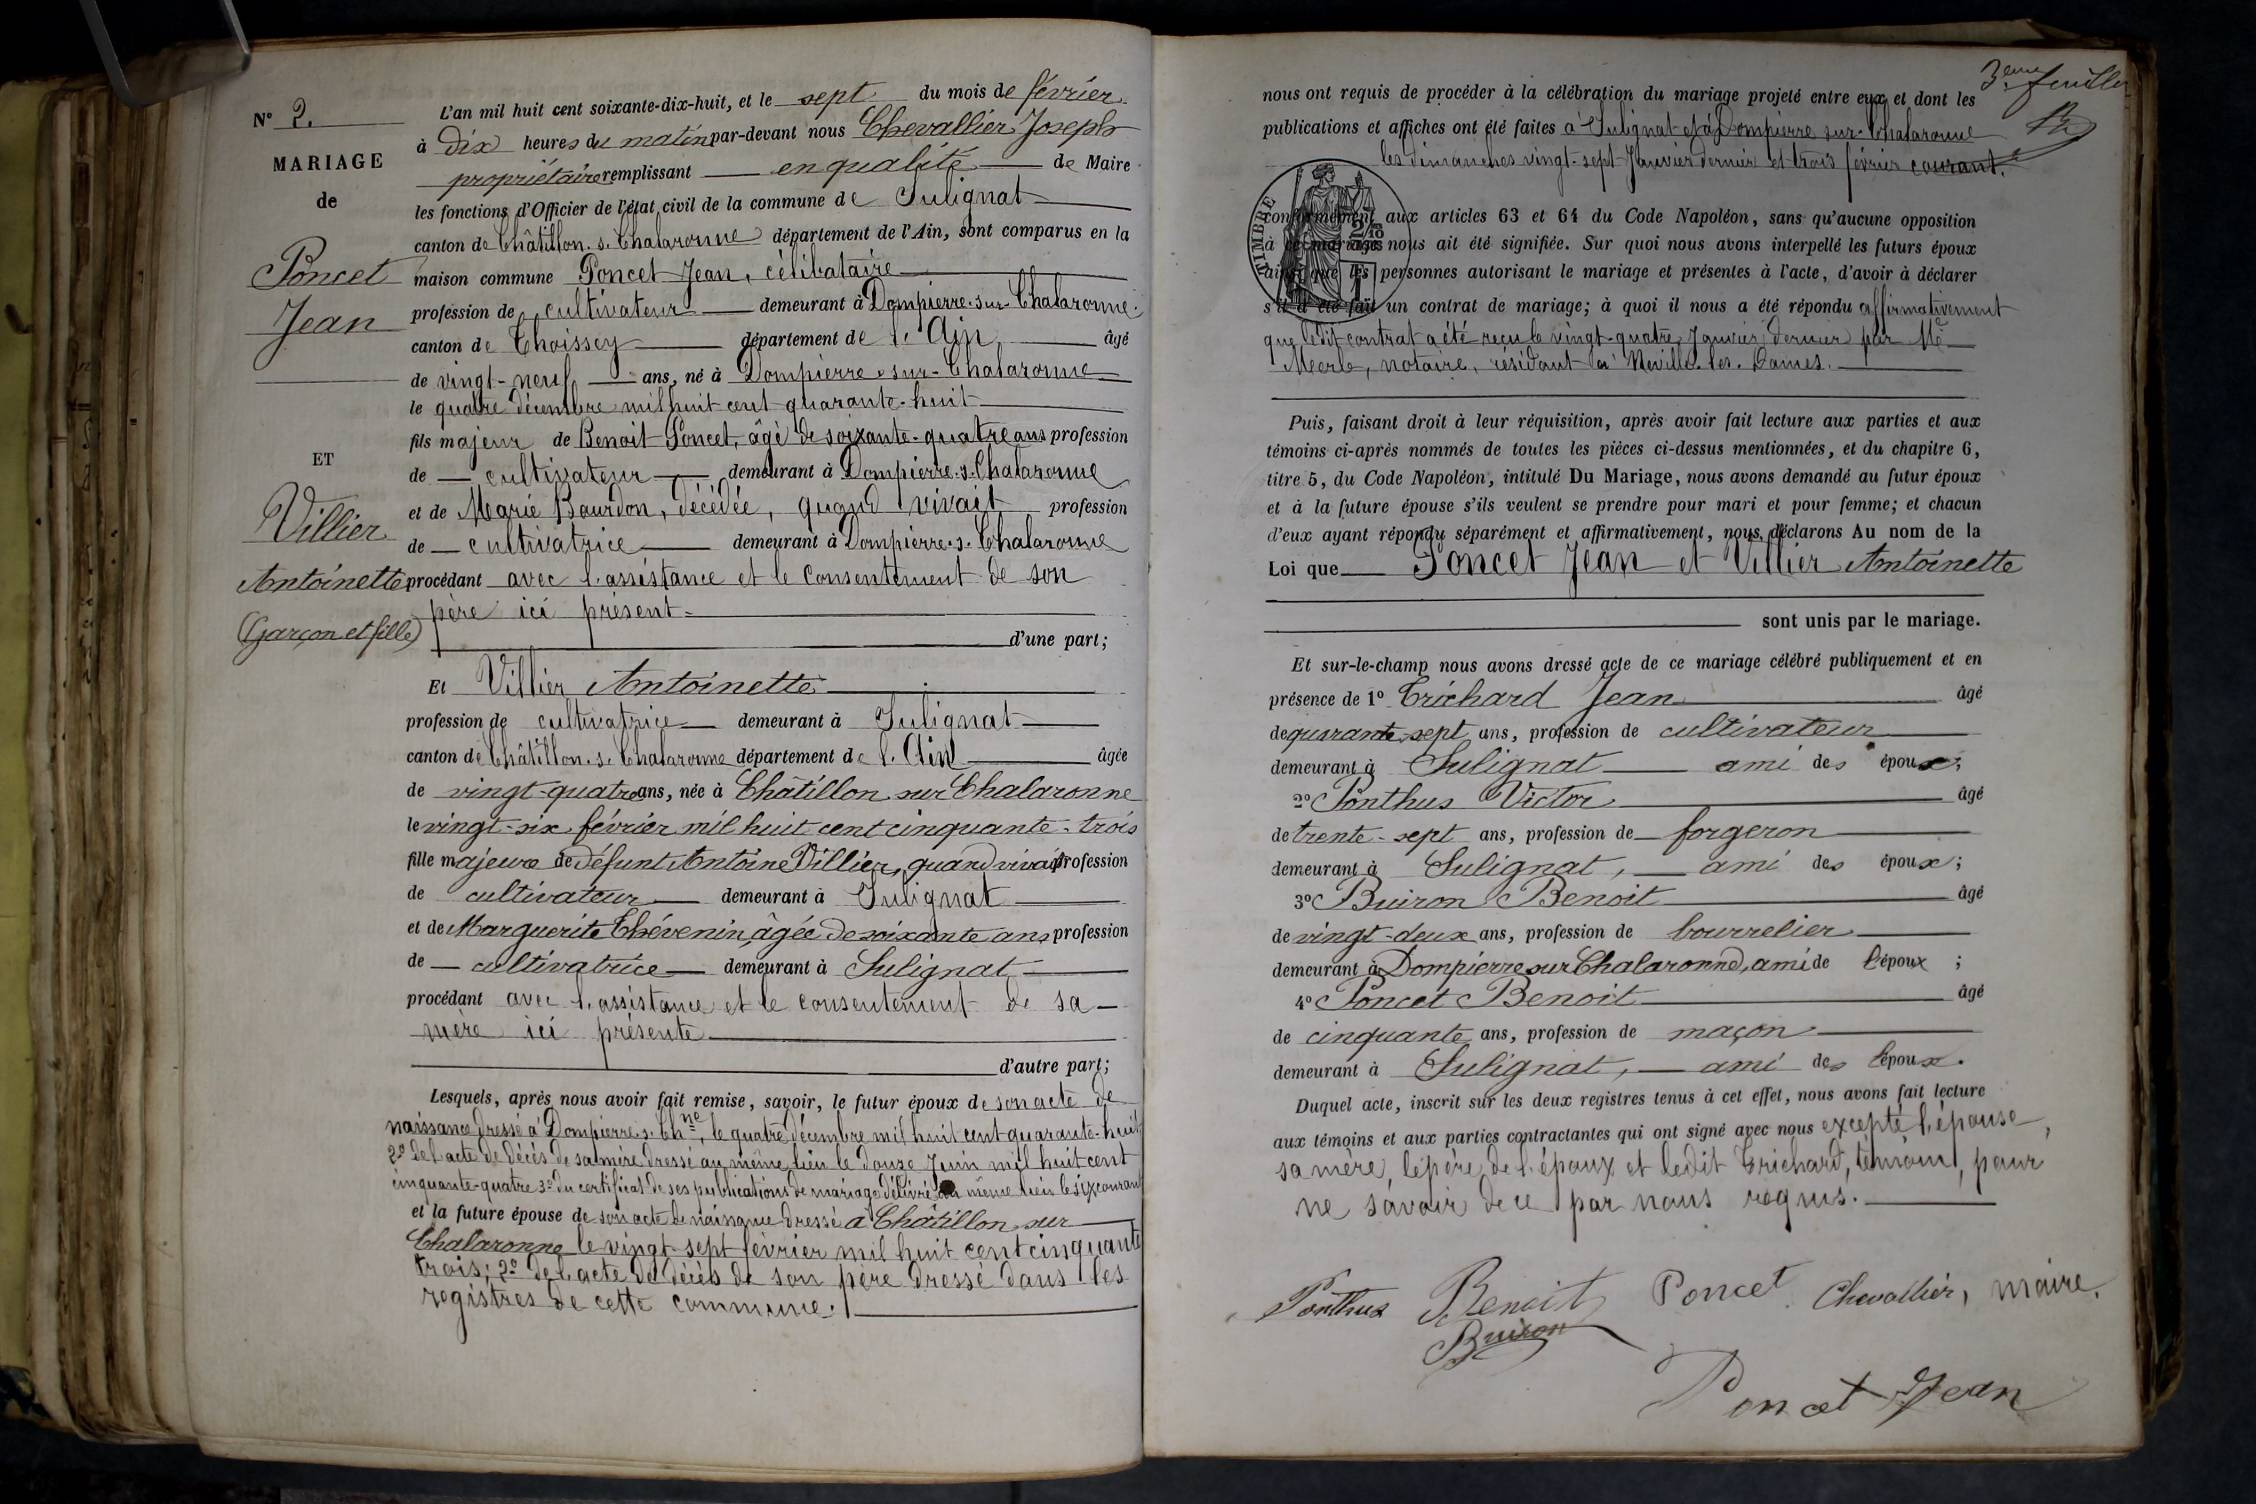 N° 2.
MARIAGE
de
Poncet
Jean
ET
Villier
Antoinette
(Garçon et fille)
L'an mil huit cent soixante-dix-huit, et le sept du mois de février
à dix heures du matin par-devant nous Chevallier Joseph
propriétaire remplissant en qualité de Maire
les fonctions d'Officier de l'état civil de la commune de Sulignat
canton de Châtillon. s. Chalaronne département de l'Ain, sont comparus en la
maison commune Poncet Jean, célibataire
profession de cultivateur demeurant à Dompierre-sur-Chalaronne.
canton de Thoissey département de l'Ain âgé
de vingt-neuf ans, né à Dompierre-sur-Chalaronne
le quatre décembre mil huit cent quarante-huit
fils majeur de Benoit Poncet, âgé de soixante-quatre ans profession
de cultivateur demeurant à Dompierre.s.Chalaronne
et de Marie Bourdon, décédée, quand vivait profession
de cultivatrice demeurant à Dompierre.s.Chalaronne
procédant avec l'assistance et le consentement de son
père ici présent
d'une part;
Et Villier Antoinette
profession de cultivatrice demeurant à Sulignat
canton de Châtillon.s.Chalaronne département de l'Ain âgée
de vingt-quatre ans, née à Châtillon sur Chalaronne
le vingt-six février mil huit cent cinquante-trois
fille majeure de défunt Antoine Villier, quand vivait profession
de cultivateur demeurant à Sulignat
et de Marguerite Thévenin, âgée de soixante ans profession
de cultivatrice demeurant à Sulignat
procédant avec l'assistance et le consentement de sa
mère ici présente
d'autre part;
Lesquels, après nous avoir fait remise, savoir, le futur époux de son acte de
naissance dressé à Dompierre.s.Chne, le quatre décembre mil huit cent quarante-huit
2° de l'acte de décès de sa mère dressé au même lieu le douze Juin mil huit cent
cinquante-quatre 3° du certificat de ses publications de mariage délivré au même lieu le six courant
et la future épouse de son acte de naissance dressé à Châtillon sur
Chalaronne le vingt sept février mil huit cent cinquante
trois; 2° de l'acte de décès de son père dressé dans les
registres de cette commune.
3eme feuillet
nous ont requis de procéder à la célébration du mariage projeté entre eux et dont les
publications et affiches ont été faites à Sulignat et à Dompierre sur-Chalaronne
les dimanches vingt-sept Janvier dernier et trois février courant.
TIMBRE
conformément aux articles 63 et 64 du Code Napoléon, sans qu'aucune opposition
à ce mariage nous ait été signifiée. Sur quoi nous avons interpellé les futurs époux
ainsi que les personnes autorisant le mariage et présentes à l'acte, d'avoir à déclarer
s'il a été fait un contrat de mariage; à quoi il nous a été répondu affirmativement
que ledit contrat a été reçu le vingt-quatre Janvier dernier par Me
Merle, notaire, résidant à Neuville-les-Dames.
Puis, faisant droit à leur réquisition, après avoir fait lecture aux parties et aux
témoins ci-après nommés de toutes les pièces ci-dessus mentionnées, et du chapitre 6,
titre 5, du Code Napoléon, intitulé Du Mariage, nous avons demandé au futur époux
et à la future épouse s'ils veulent se prendre pour mari et pour femme; et chacun
d'eux ayant répondu séparément et affirmativement, nous déclarons Au nom de la
Loi que Poncet Jean et Villier Antoinette
sont unis par le mariage.
Et sur-le-champ nous avons dressé acte de ce mariage célébré publiquement et en
présence de 1° Trichard Jean âgé
de quarante sept ans, profession de cultivateur
demeurant à Sulignat ami des époux;
2° Ponthus Victor âgé
de trente-sept ans, profession de forgeron
demeurant à Sulignat, ami des époux;
3° Buiron Benoit âgé
de vingt-deux ans, profession de bourrelier
demeurant à Dompierre sur Chalaronne, ami de l'époux ;
4° Poncet Benoit âgé
de cinquante ans, profession de maçon
demeurant à Sulignat, ami des époux.
Duquel acte, inscrit sur les deux registres tenus à cet effet, nous avons fait lecture
aux témoins et aux parties contractantes qui ont signé avec nous excepté l'épouse,
sa mère, le père de l'époux et ledit Trichard, témoin, pour
ne savoir de ce par nous requis.
Ponthus Benoit Poncet Chevallier, maire.
Buiron
Poncet Jean